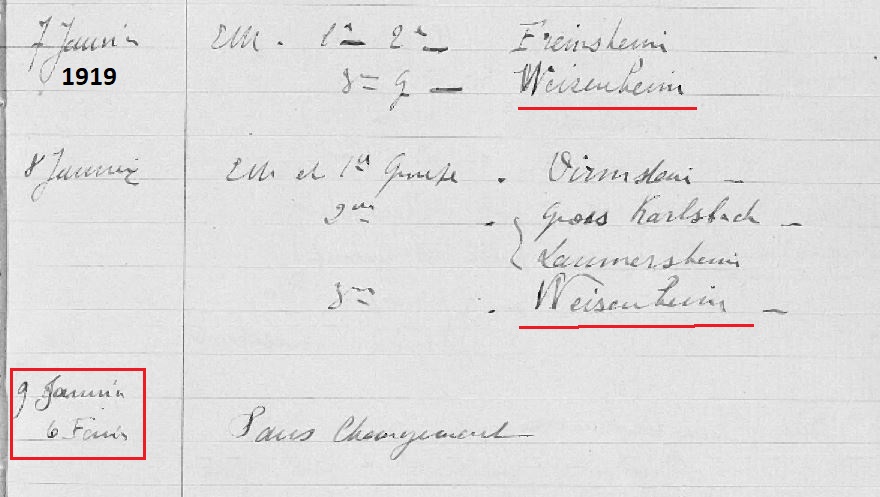 7 Janvier EM. 1er 2e Freinsheim
1919 3e G Weisenheim
8 Janvier EM et 1er Groupe. Dirmstein
2me Gross Karlsbach
Laumersheim
3me Weisenheim
9 Janvier
6 Février Sans Changement